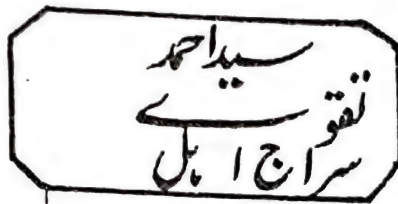 سید احمد
تقوے
سراج اہل